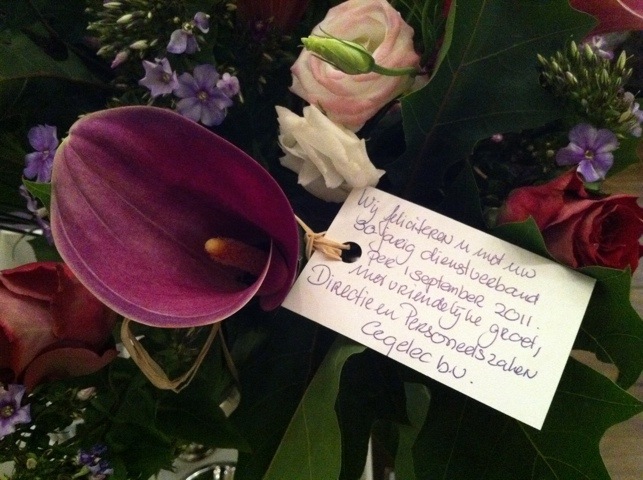 Wij feliciteren u met uw
30 jarig dienstverband
per 1 september 2011.
Met vriendelijke groet,
Directie en Personeelszaken
Cegelec bv.